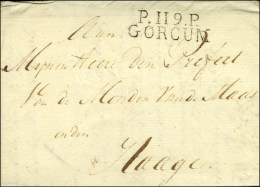 P.119.P.
GORCUM
Aan
Mynheere den Prefect
Van de Monden van de Maas
in den
Haage